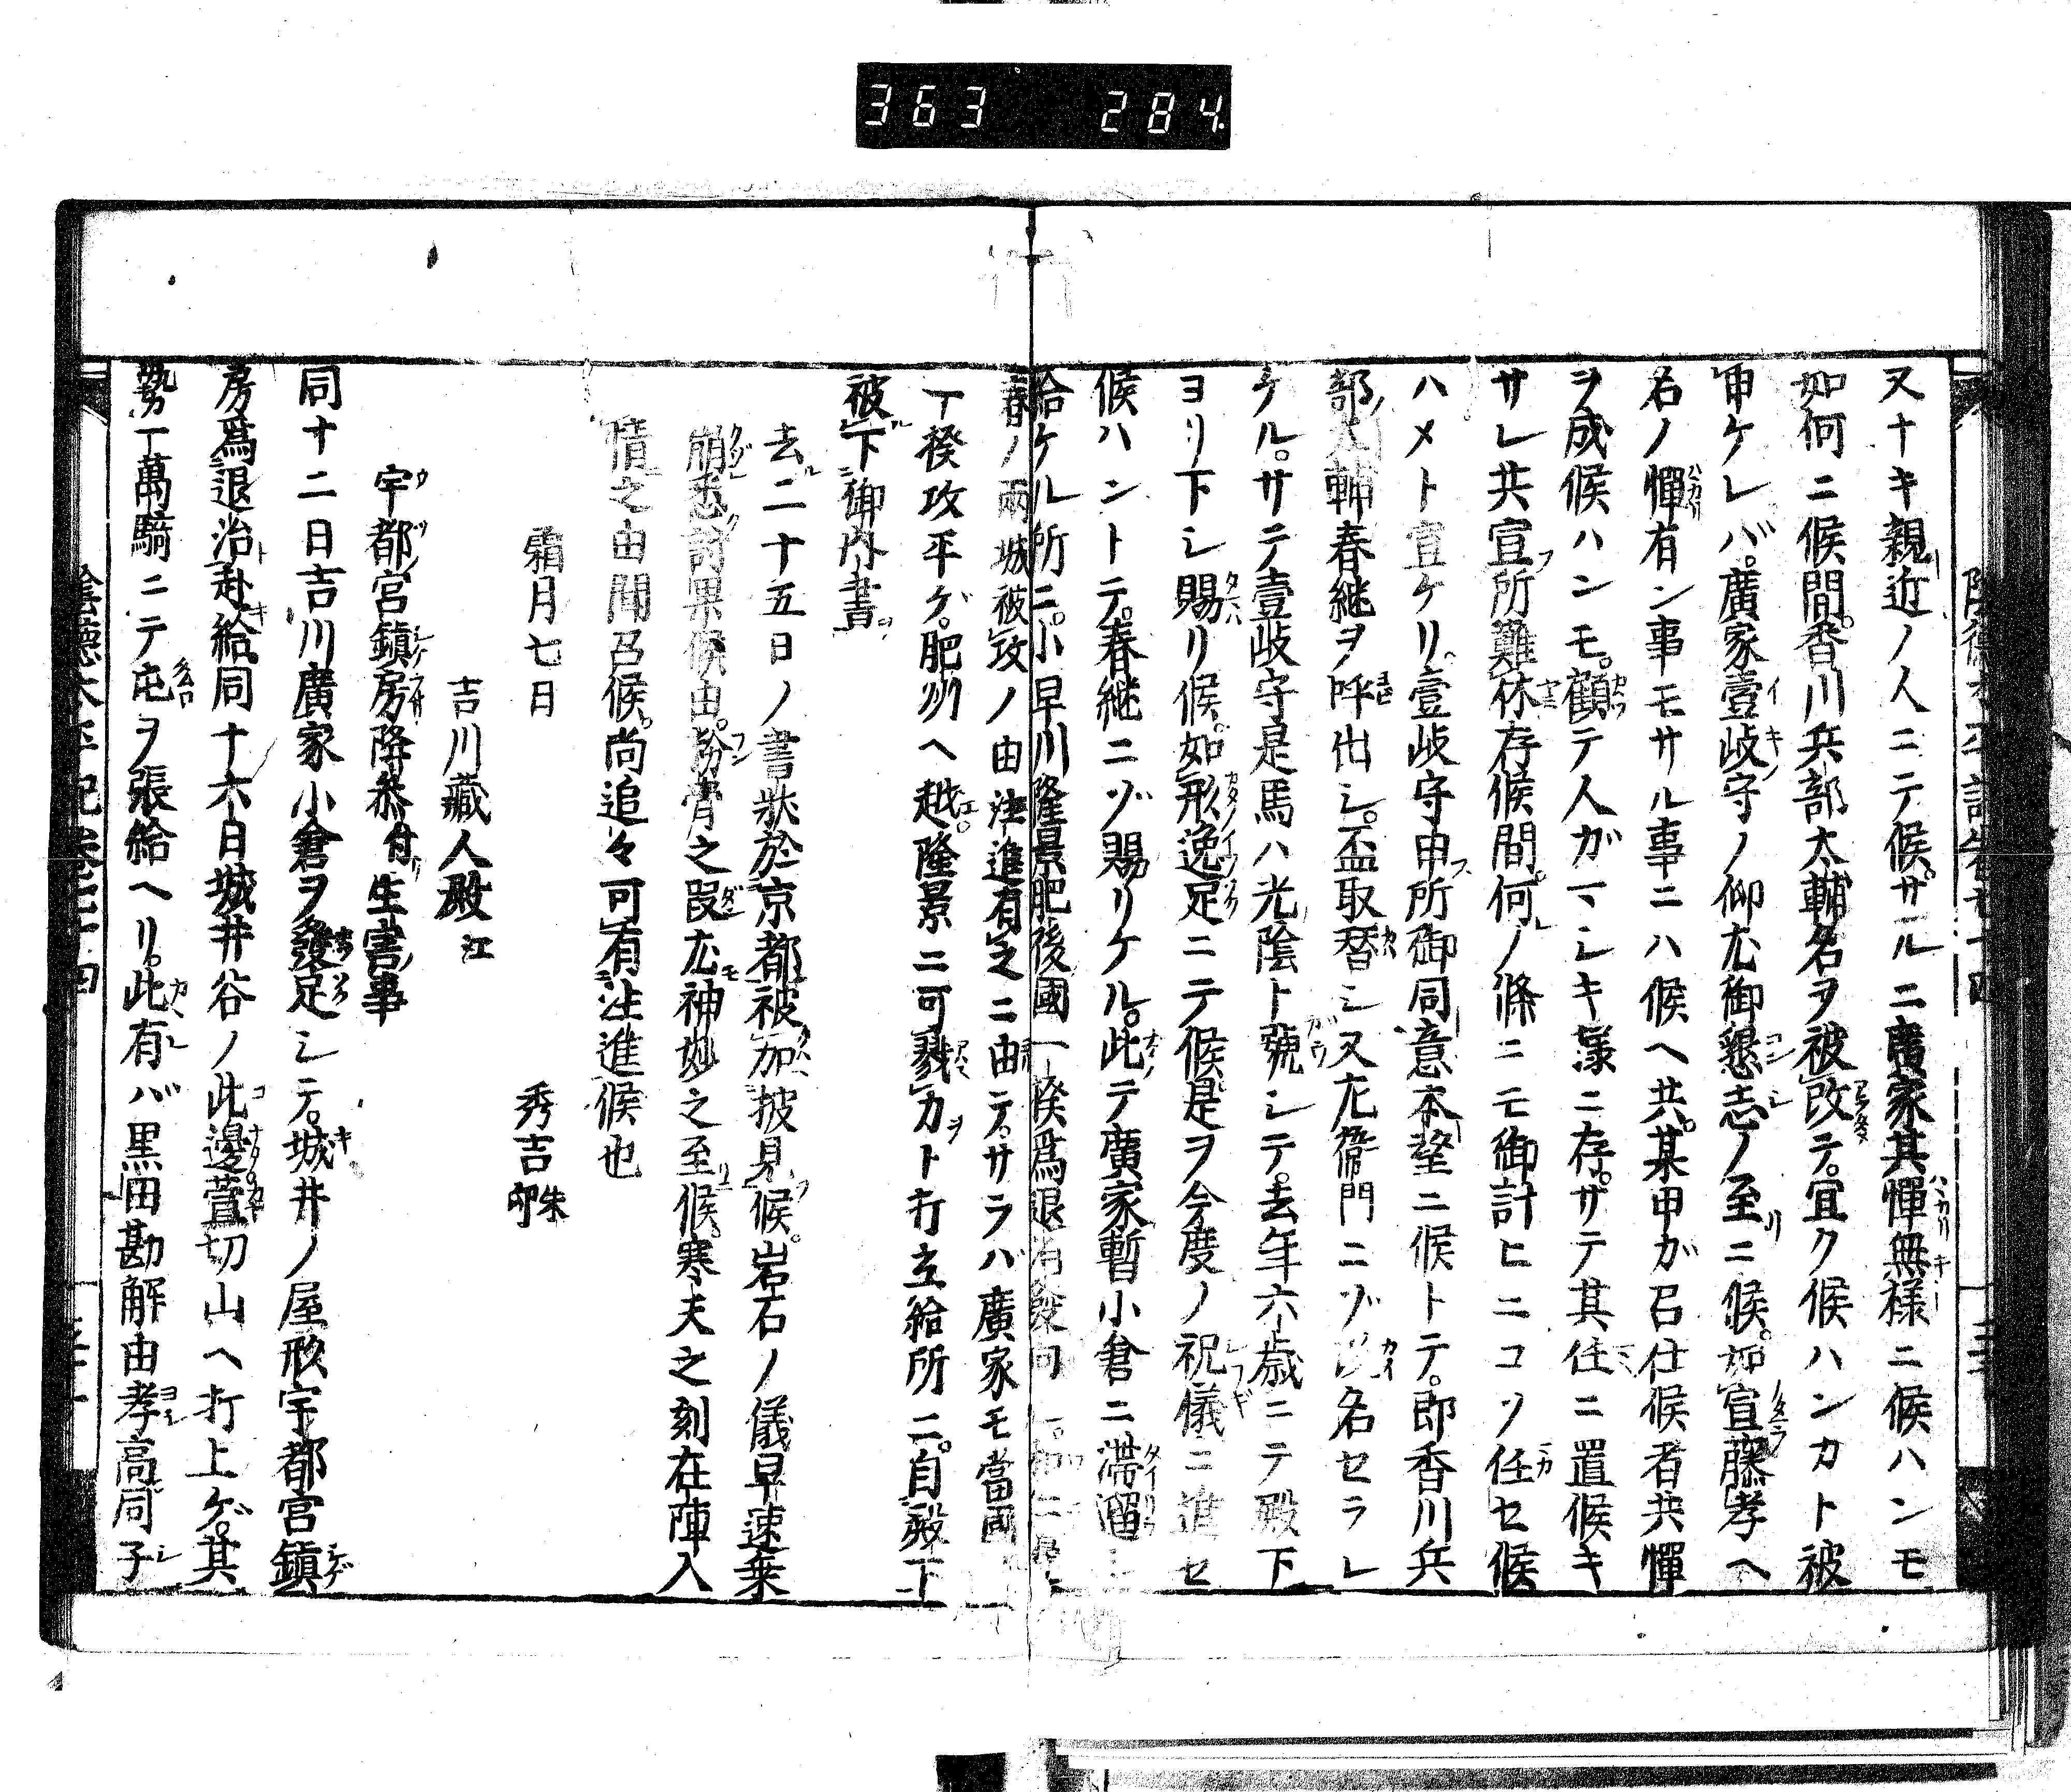 363 284
又ナキ親近ノ人ニテ候サルニ廣家其憚無樣ニ候ハンモ
如何ニ候間香川兵部太輔名ヲ被改テ宜ク候ハンカト被
申ケレバ廣家壹岐守ノ仰尤御懇志ノ至ニ候如宣藤孝ヘ
名ノ憚有ン事モサル事ニハ候ヘ共某甲ガ召仕候者共憚
ヲ成候ハンモ顧テ人ガマシキ樣ニ存サテ其任ニ置候キ
サレ共宣所難休存候間何ノ條ニモ御計ヒニコソ任セ候
ハメト宣ケリ壹岐守申所御同意本望ニ候トテ郎香川兵
部太輔春継ヲ呼出シ盃取替シ又左衞門ニゾ名セラレ
ケルサテ壹岐守是馬ハ光陰ト號シテ去年六歳ニテ殿下
ヨリ下シ賜リ候如形逸足ニテ候是ヲ今度ノ祝儀ニ進セ
候ハントテ春継ニゾ賜リケル此テ廣家暫小倉ニ滯溜シ
給ケル所ニ小早川隆景肥後國一揆爲退治發向
春ノ兩城被攻ノ由注進有之ニ由テサラバ廣家モ當國
一揆攻平ゲ肥州ヘ越隆景ニ可戮力ト打立給所ニ自殿下
被下御内書
去二十五日ノ書狀於京都被加披見候岩石ノ儀早速乗
崩悉討果候由粉骨之段尤神妙之至候寒天之刻在陣入
情之由聞召候尚追々可有注進候也
霜月七日 秀吉朱印
吉川藏人殿江
宇都宮鎭房降參付生害事
同十二日吉川廣家小倉ヲ發足シテ城井ノ屋形宇都宮鎭
房爲退治赴給同十六日城井谷ノ此邊萱切山ヘ打上ゲ其
勢一萬騎ニテ屯ヲ張給ヘリ此有バ黒田勘解由孝高同子
陰德太平記卷七十四